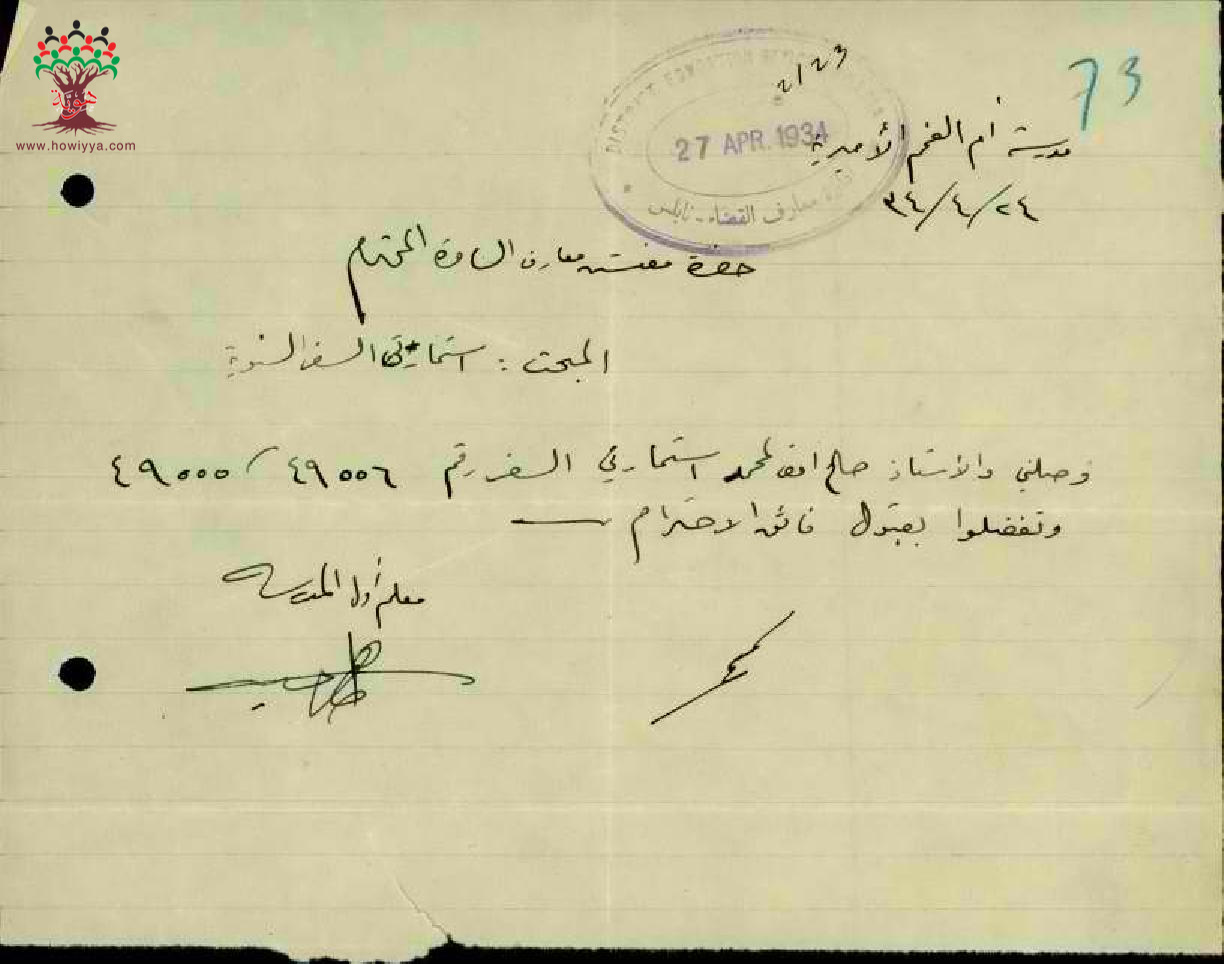 هوية
www.howiyya.com
73
2123
DISTRICT EDUCATION
27 APR. 1934
معارف القضاء - نابلس
مدرسة أم الفحم الأميرية
٣٤/٤/٢٤
حضرة مفتش معارف السامرة المحترم
المبحث : استمارتي السفر السنوية
وصلني والأستاذ صالح افندي محمد استمارتي السفر رقم ٤٩٠٠٦ / ٤٩٠٠٠٥
وتفضلوا بقبول فائق الاحترام
معلم أول المدرسة